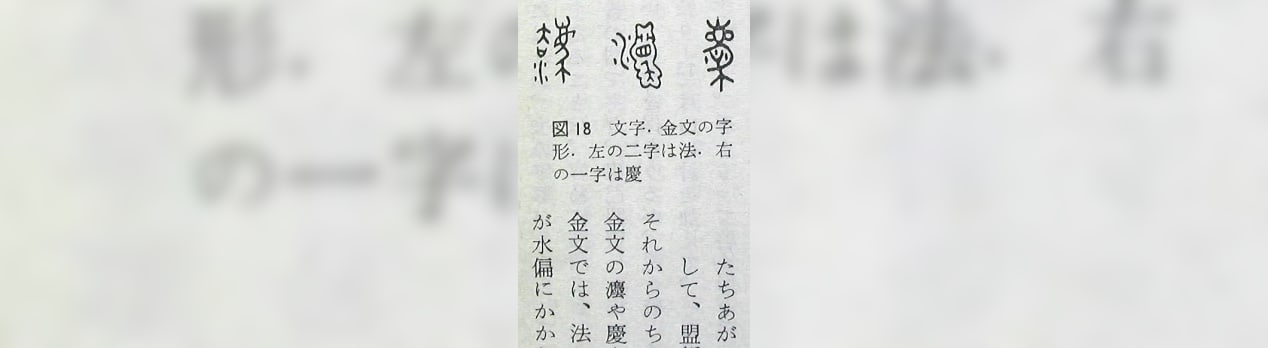 図18 文字.金文の字
形.左の二字は法.右
の一字は慶
たちあが
して、盟
それからのち
金文の灋や慶
金文では、法
が水偏にかか